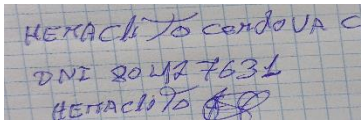 HEMACLiTo CORdoVA C
DNI 80427631
HEMACLiTo